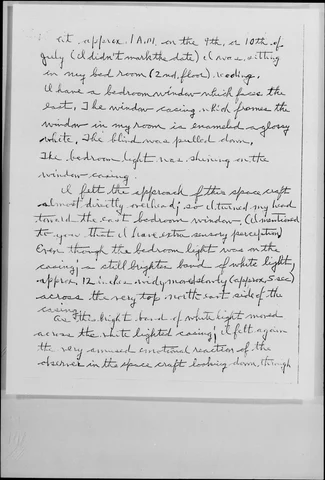 at approx. 1 A.M. on the 9th, or 10th of
July (I didn't mark the date) I was sitting
in my bed room (2nd. floor) reading.
I have a bedroom window which faces the
east. The window casing which frames the
window in my room is enameled a glossy
white. The blind was pulled down,
The bedroom light was shining on the
window casing.
I felt the approach of this space craft
almost directly overhead; so I turned my head
toward the east bedroom window. (I mentioned
to you that I have extra sensory perception)
Even though the bedroom light was on the
casing; a still brighter band of white light,
approx. 12 inches wide, moved slowly (approx. 5 sec)
across the very top north east side of the
casing;
As this bright band of white light moved
across the white lighted casing, I felt again
the very amused emotional reaction of the
observer in the space craft looking down, through